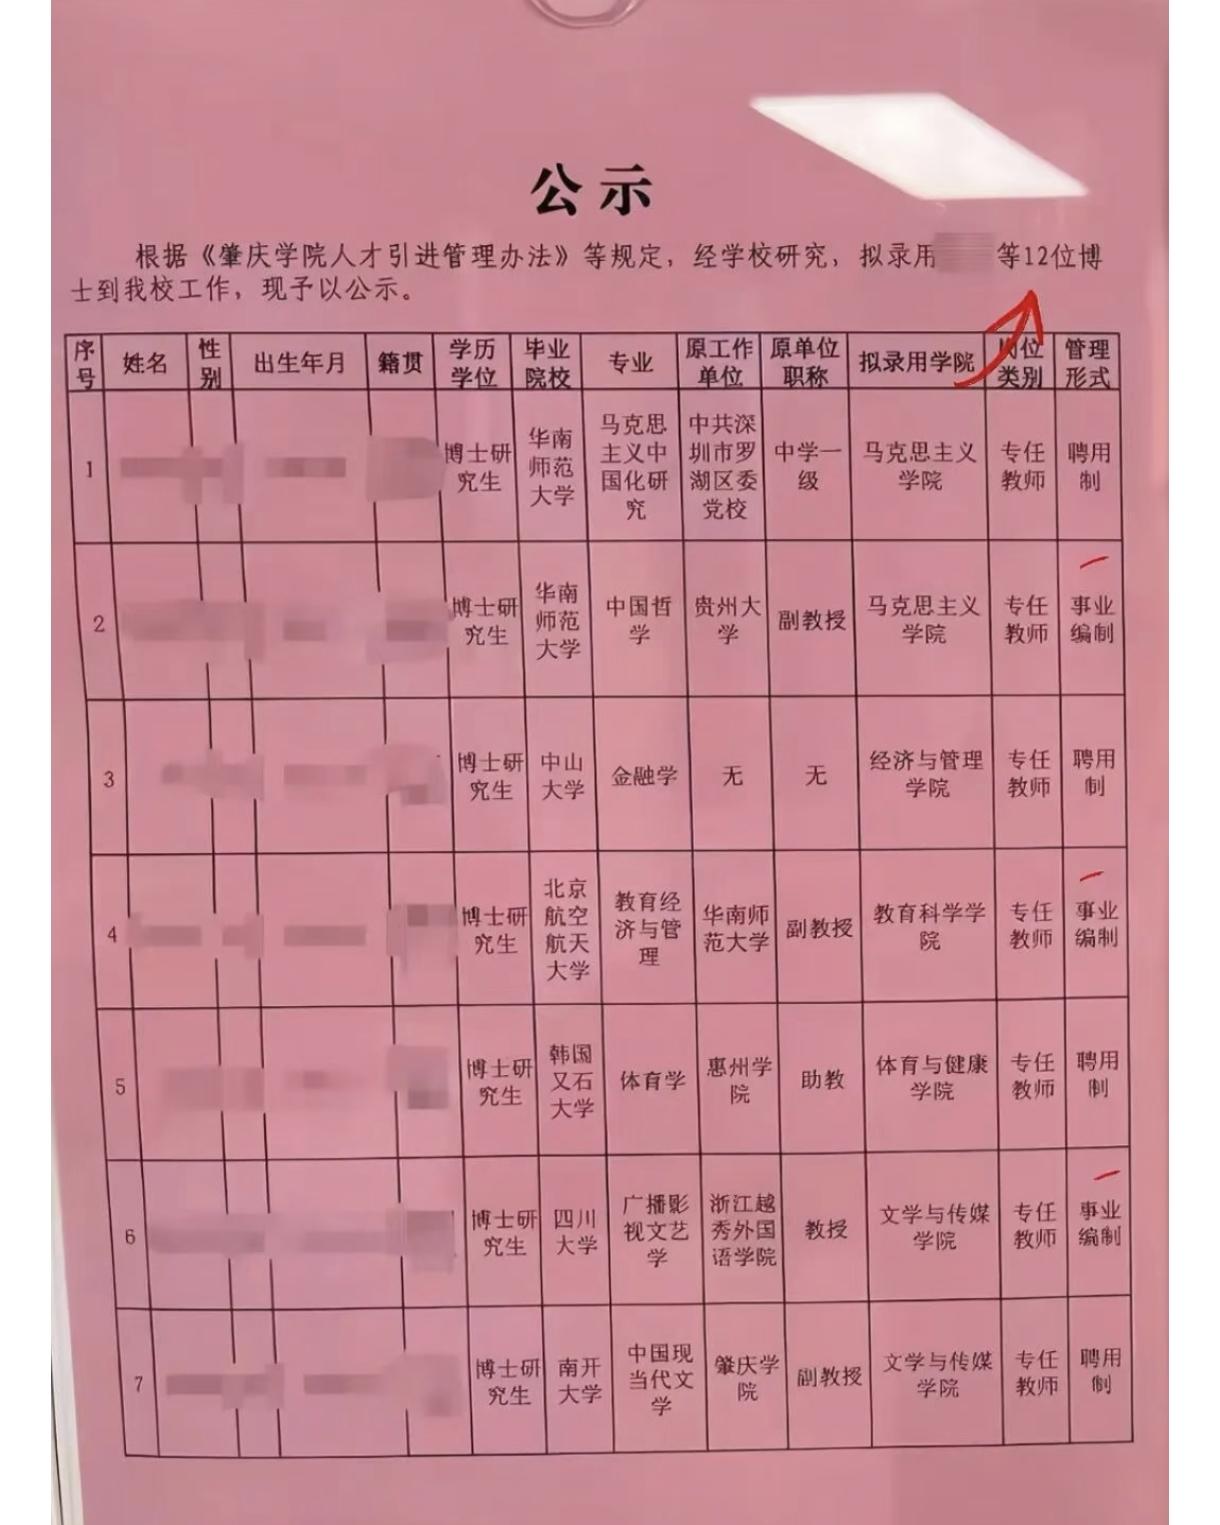 公示
根据《肇庆学院人才引进管理办法》等规定，经学校研究，拟录用 等12位博
士到我校工作，现予以公示。
序号 姓名 性别 出生年月 籍贯 学历学位 毕业院校 专业 原工作单位 原单位职称 拟录用学院 岗位类别 管理形式
1 博士研究生 华南师范大学 马克思主义中国化研究 中共深圳市罗湖区委党校 中学一级 马克思主义学院 专任教师 聘用制
2 博士研究生 华南师范大学 中国哲学 贵州大学 副教授 马克思主义学院 专任教师 事业编制
3 博士研究生 中山大学 金融学 无 无 经济与管理学院 专任教师 聘用制
4 博士研究生 北京航空航天大学 教育经济与管理 华南师范大学 副教授 教育科学学院 专任教师 事业编制
5 博士研究生 韩国又石大学 体育学 惠州学院 助教 体育与健康学院 专任教师 聘用制
6 博士研究生 四川大学 广播影视文艺学 浙江越秀外国语学院 教授 文学与传媒学院 专任教师 事业编制
7 博士研究生 南开大学 中国现当代文学 肇庆学院 副教授 文学与传媒学院 专任教师 聘用制